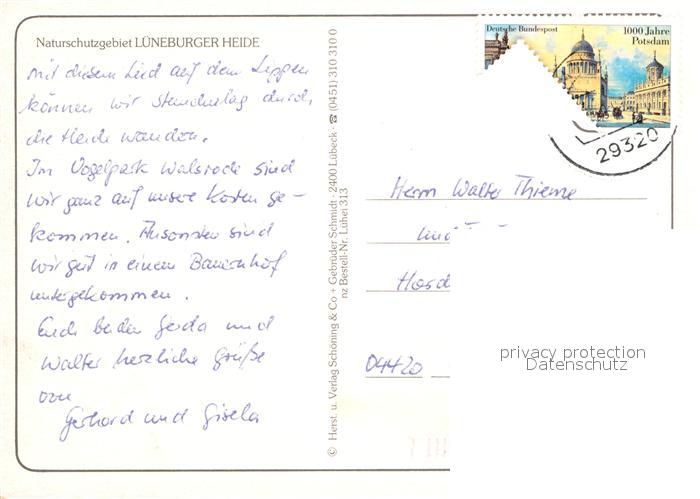 Naturschutzgebiet LÜNEBURGER HEIDE
mit diesem Lied auf den Lippen
können wir stundenlag durch
die Heide wandern.
Im Vogelpark Walsrode sind
wir ganz auf unsere Kosten ge-
kommen. Ansonsten sind
wir gut in einem Bauernhof
untergekommen.
Euch beiden Gerda und
Walter herzliche Grüße
von
Gerhard und Gisela
© Herst. u. Verlag Schöning & Co + Gebrüder Schmidt · 2400 Lübeck · ☎ (0451) 310 310 0
nz Bestell-Nr. Lühei 313
Deutsche Bundespost
1000 Jahre
Potsdam
29320
Herrn Walter Thieme
und
04420
privacy protection
Datenschutz